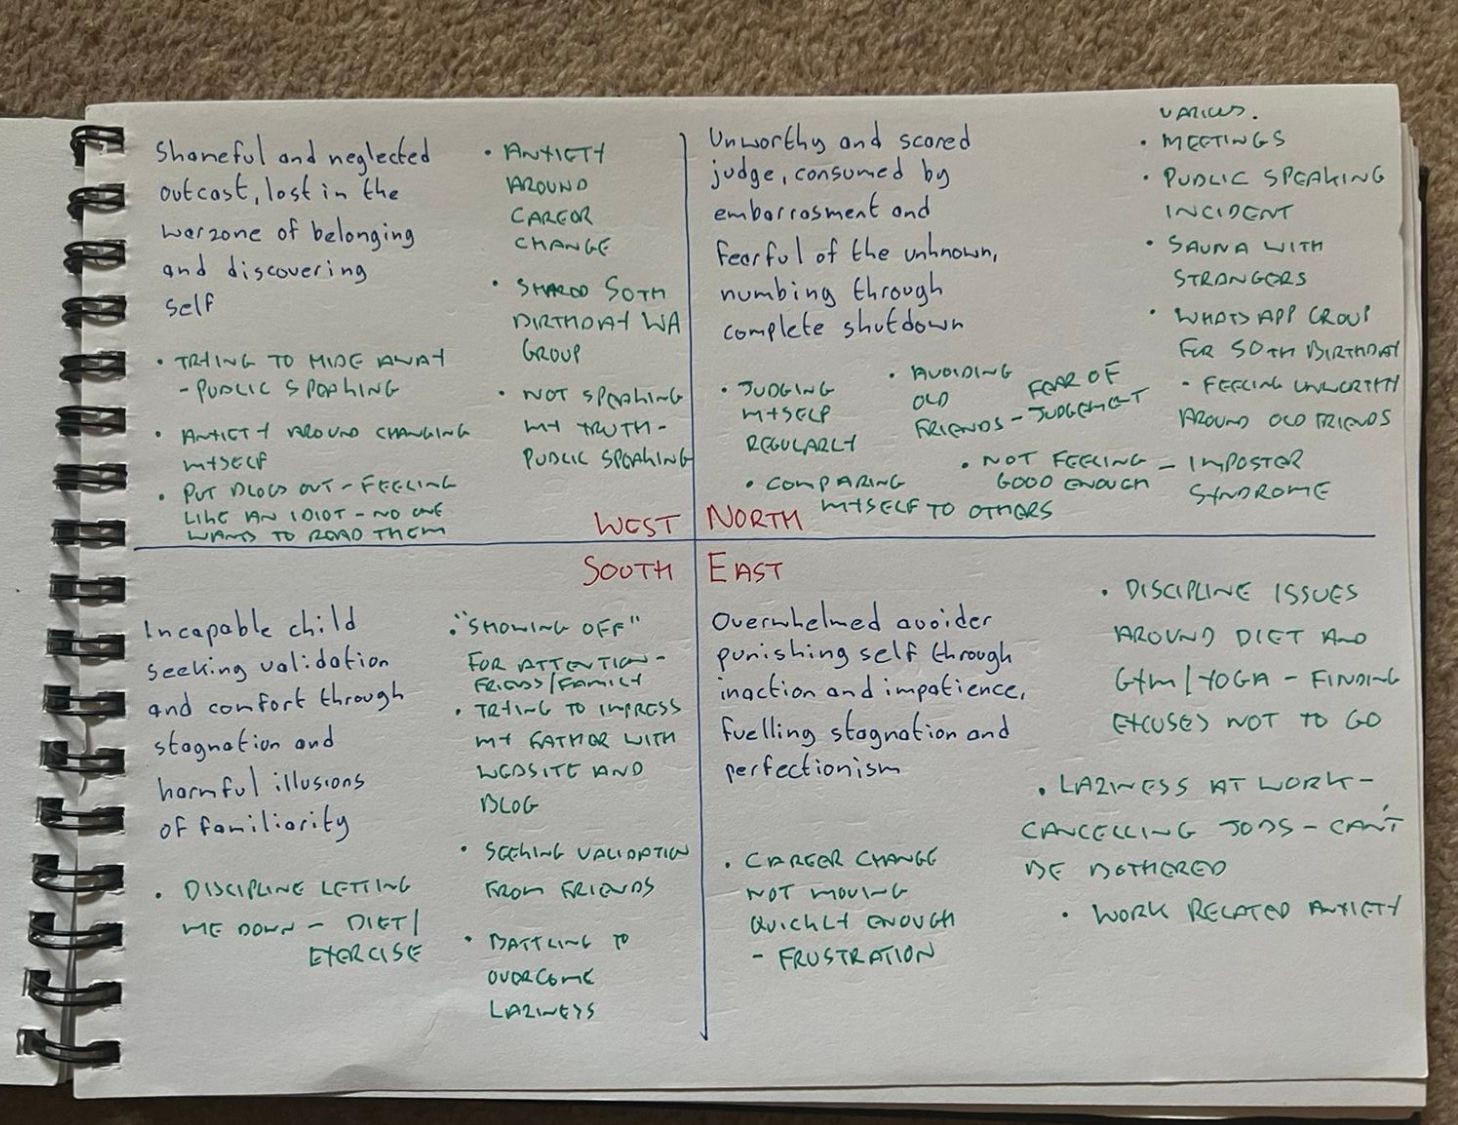 Shameful and neglected
outcast, lost in the
warzone of belonging
and discovering
self
• TRYING TO HIDE AWAY
- PUBLIC SPEAKING
• ANXIETY AROUND CHANGING
MYSELF
• PUT BLOGS OUT - FEELING
LIKE AN IDIOT - NO ONE
WANTS TO READ THEM
• ANXIETY
AROUND
CAREER
CHANGE
• SHARED 50TH
BIRTHDAY WA
GROUP
• NOT SPEAKING
MY TRUTH -
PUBLIC SPEAKING
WEST
Unworthy and scared
judge, consumed by
embarrasment and
fearful of the unknown,
numbing through
complete shutdown
• JUDGING
MYSELF
REGULARLY
• COMPARING
MYSELF TO OTHERS
• AVOIDING
OLD
FRIENDS - FEAR OF
JUDGEMENT
• NOT FEELING
GOOD ENOUGH - IMPOSTER
SYNDROME
VARIOUS.
• MEETINGS
• PUBLIC SPEAKING
INCIDENT
• SAUNA WITH
STRANGERS
• WHATSAPP GROUP
FOR 50TH BIRTHDAY
- FEELING UNWORTHY
AROUND OLD FRIENDS
NORTH
SOUTH
Incapable child
seeking validation
and comfort through
stagnation and
harmful illusions
of familiarity
• DISCIPLINE LETTING
ME DOWN - DIET/
EXERCISE
• "SHOWING OFF"
FOR ATTENTION -
FRIENDS/FAMILY
• TRYING TO IMPRESS
MY FATHER WITH
WEBSITE AND
BLOG
• SEEKING VALIDATION
FROM FRIENDS
• BATTLING TO
OVERCOME
LAZINESS
EAST
Overwhelmed avoider
punishing self through
inaction and impatience,
fuelling stagnation and
perfectionism
• CAREER CHANGE
NOT MOVING
QUICKLY ENOUGH
- FRUSTRATION
• DISCIPLINE ISSUES
AROUND DIET AND
GYM/YOGA - FINDING
EXCUSES NOT TO GO
• LAZINESS AT WORK -
CANCELLING JOBS - CAN'T
BE BOTHERED
• WORK RELATED ANXIETY